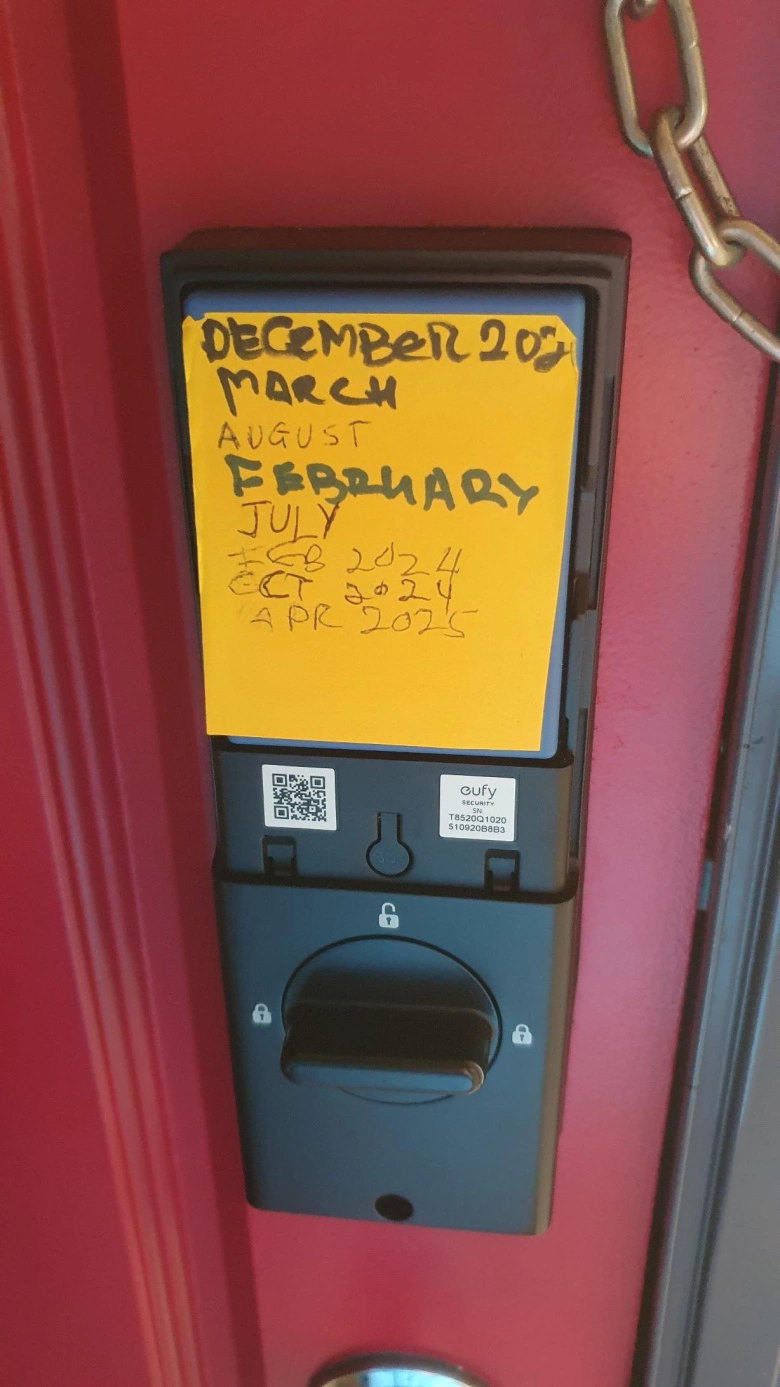 DECEMBER 202
MARCH
AUGUST
FEBRUARY
JULY
FEB 2024
OCT 2024
APR 2025
eufy
SECURITY
SN:
T8520Q1020
510920B8B3